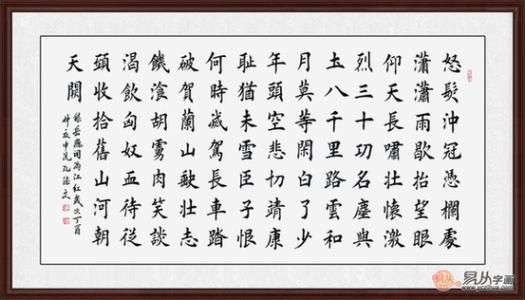 怒髮沖冠憑欄處
瀟瀟雨歇抬望眼
仰天長嘯壯懷激
烈三十功名塵與
圡八千里路雲和
月莫等閑白了少
年頭空悲切靖康
恥猶未雪臣子恨
何時滅駕長車踏
破賀蘭山缺壯志
饑飡胡虜肉笑談
渴飲匈奴血待從
頭收拾舊山河朝
天闕
錄岳飛詞滿江紅歲次丁酉
易从字画